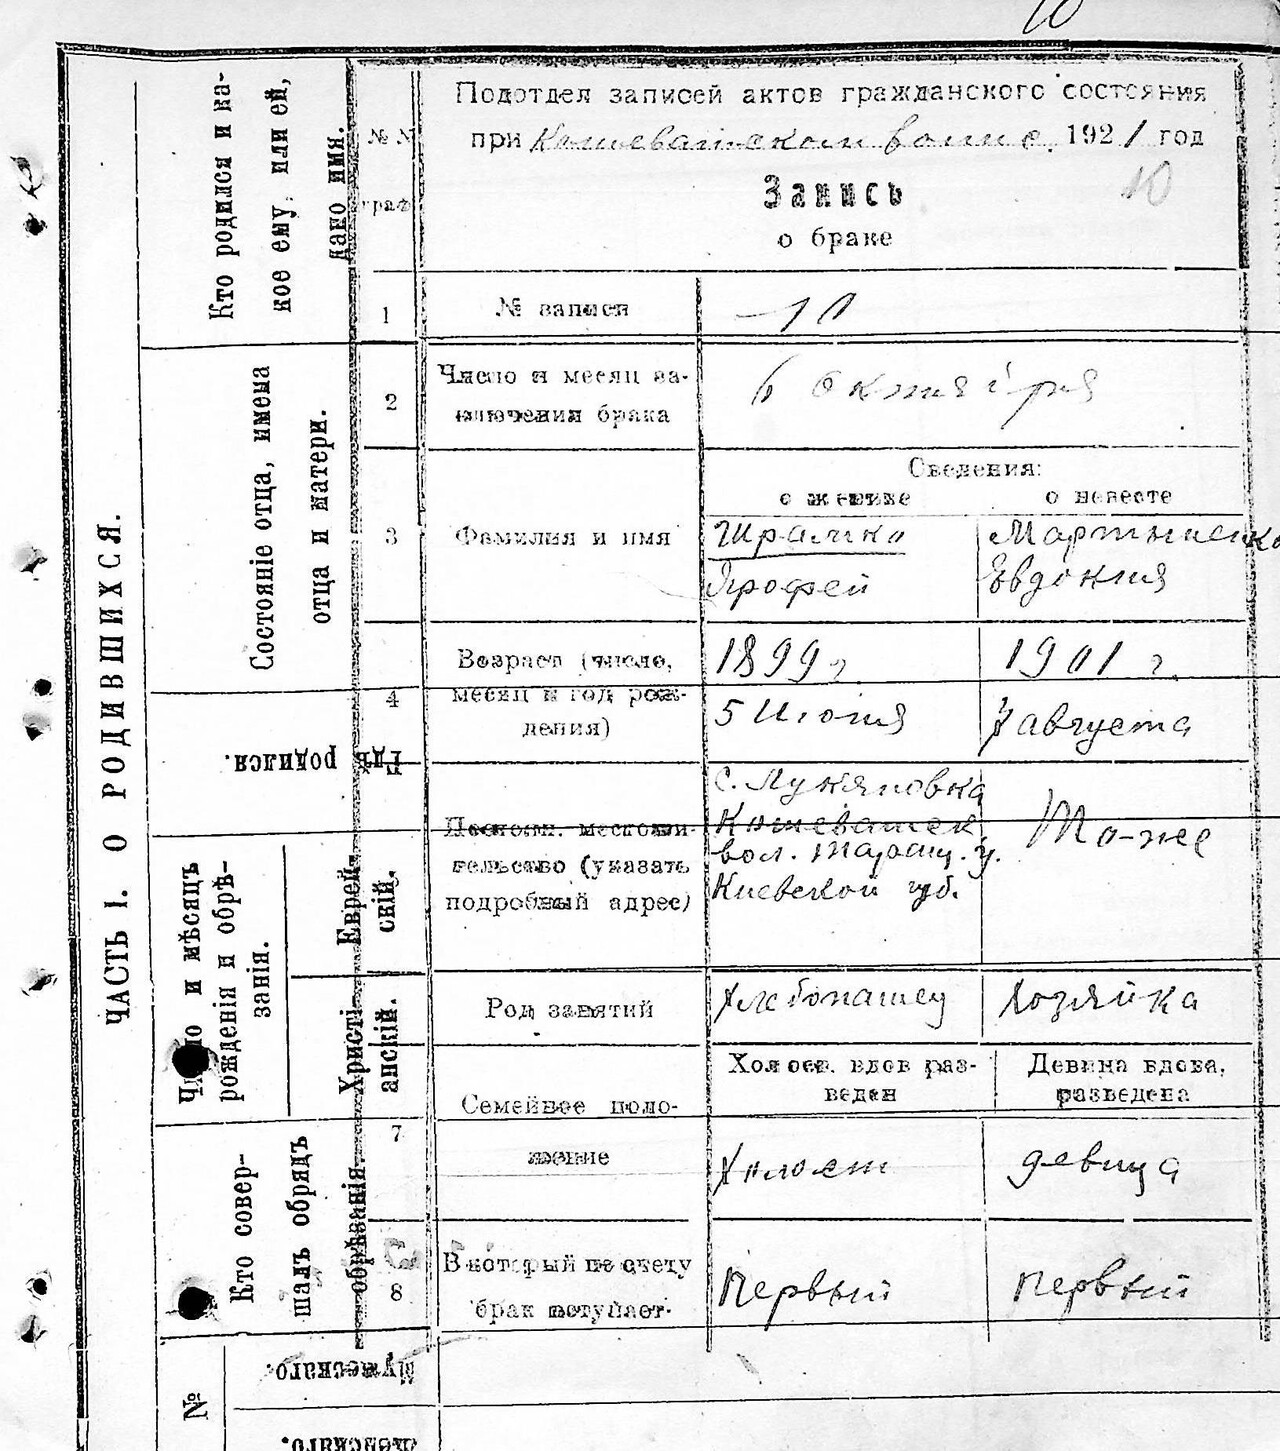 10
Подотдел записей актов гражданского состояния
при Кошеватском волис. 1921 год
10
Запись
о браке
№ №
граф
1 № записи 10
2 Число и месяц за-
ключения брака
6 октября
Сведения:
о женихе о невесте
3 Фамилия и имя
Шрамко Мартыненко
Ярофей Евдокия
4 Возраст (число,
месяц и год рож-
дения)
1899 г. 1901 г.
5 Июня 7 августа
местожи-
тельство (указать
подробный адрес)
с. Лукяновка
Кошеватск
вол. Таращ. у.
Киевской губ.
То-же
Род занятий Хлебопашец Хозяйка
7 Семейное поло-
жение
Холост. вдов раз-
веден
Девица вдова,
разведена
Холост девица
8 В который по счету
брак вступает
Первый первый
ЧАСТЬ I. О РОДИВШИХСЯ.
Кто родился и ка-
кое ему, или ей,
дано имя.
Состояніе отца, имена
отца и матери.
Гдѣ
родился.
Число и мѣсяцъ
рожденія и обрѣ-
занія.
Еврей-
скій.
Христі-
анскій.
Кто совер-
шалъ обрядъ
обрѣзанія.
№
Мужескаго.
Женскаго.